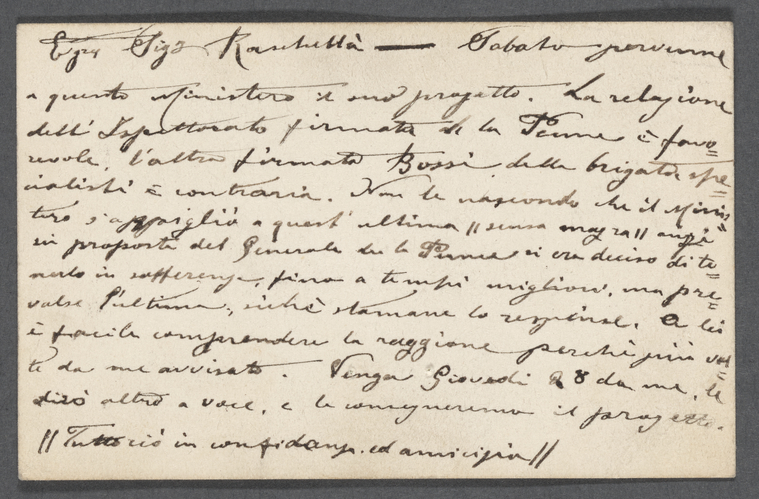 Egr. Sigr Raschettà — Sabato pervenne
a questo Ministero il suo progetto. La relazione
dell' Ispettorato firmata de la Penne è favo=
revole, l'altra firmata Bossi della brigata spe=
cialisti è contraria. Non le nascondo che il Minis=
tero s'appigliò a quest' ultima // senza magra // anzi
in proposta del Generale de la Penne si era deciso di te=
nerlo in sofferenza, fino a tempi migliori, ma pre=
valse l'ultima, sichè stamane lo respinse. A lei
è facile comprendere la raggione perchè più vol=
te da me avvisato. Venga Giovedì 28 da me, le
dirò altro a voce, e le consegneremo il progetto.
// Tutto ciò in confidenza ed amicizia //